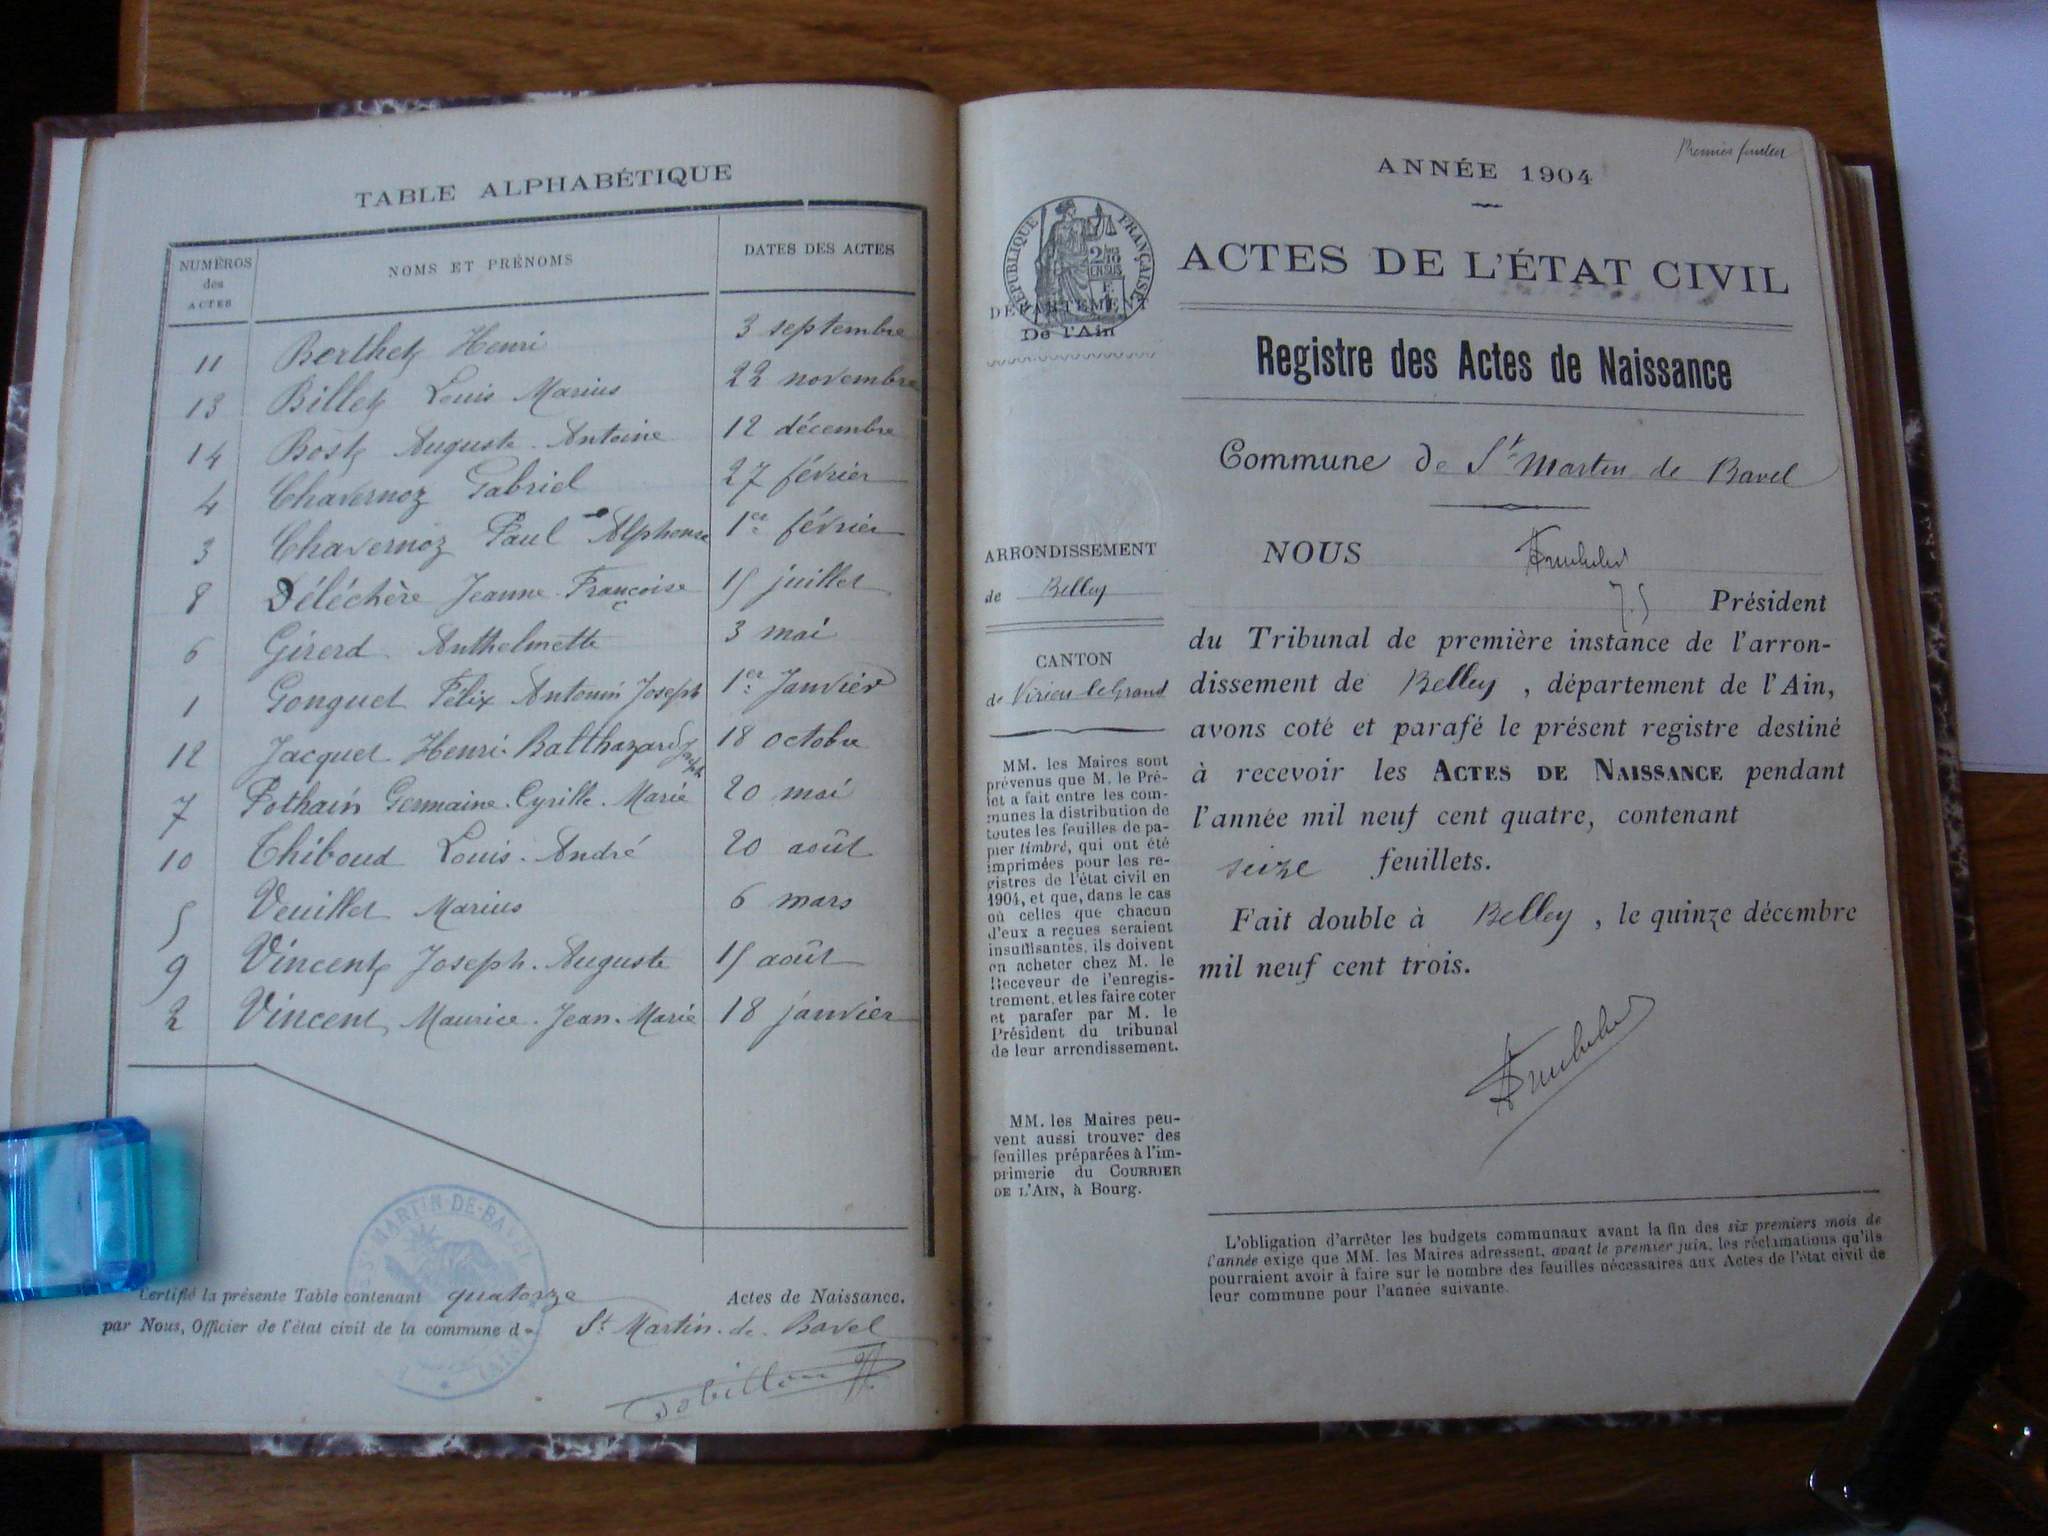 TABLE ALPHABÉTIQUE
NUMÉROS des ACTES
NOMS ET PRÉNOMS
DATES DES ACTES
11 Berthet Henri 3 septembre
13 Billet Louis Marius 22 novembre
14 Bost Auguste Antoine 12 décembre
4 Chavernoz Gabriel 27 février
3 Chavernoz Paul Alphonse 1er février
8 Déléchère Jeanne Françoise 15 juillet
6 Girerd Anthelmette 3 mai
1 Gonguet Félix Antonin Joseph 1er Janvier
12 Jacquet Henri Balthazard Joseph 18 octobre
7 Pothain Germaine Cyrille Marie 20 mai
10 Thiboud Louis André 20 août
5 Veuillet Marius 6 mars
9 Vincent Joseph Auguste 15 août
2 Vincent Maurice Jean Marie 18 janvier
ST MARTIN-DE-BAVEL
(AIN)
Certifié la présente Table contenant quatorze Actes de Naissance.
par Nous, Officier de l'état civil de la commune de St Martin de Bavel
Premier feuillet
ANNÉE 1904
RÉPUBLIQUE FRANÇAISE
2/10 EN SUS
DÉPARTEMENT
De l'Ain
ACTES DE L'ÉTAT CIVIL
Registre des Actes de Naissance
Commune de St Martin de Bavel
ARRONDISSEMENT
de Belley
CANTON
de Virieu-le-Grand
MM. les Maires sont
prévenus que M. le Pré-
fet a fait entre les com-
munes la distribution de
toutes les feuilles de pa-
pier timbré, qui ont été
imprimées pour les re-
gistres de l'état civil en
1904, et que, dans le cas
où celles que chacun
d'eux a reçues seraient
insuffisantes, ils doivent
en acheter chez M. le
Receveur de l'enregis-
trement, et les faire coter
et parafer par M. le
Président du tribunal
de leur arrondissement.
MM. les Maires peu-
vent aussi trouver des
feuilles préparées à l'im-
primerie du COURRIER
DE L'AIN, à Bourg.
NOUS
Président
du Tribunal de première instance de l'arron-
dissement de Belley, département de l'Ain,
avons coté et parafé le présent registre destiné
à recevoir les ACTES DE NAISSANCE pendant
l'année mil neuf cent quatre, contenant
seize feuillets.
Fait double à Belley, le quinze décembre
mil neuf cent trois.
L'obligation d'arrêter les budgets communaux avant la fin des six premiers mois de
l'année exige que MM. les Maires adressent, avant le premier juin, les réclamations qu'ils
pourraient avoir à faire sur le nombre des feuilles nécessaires aux Actes de l'état civil de
leur commune pour l'année suivante.